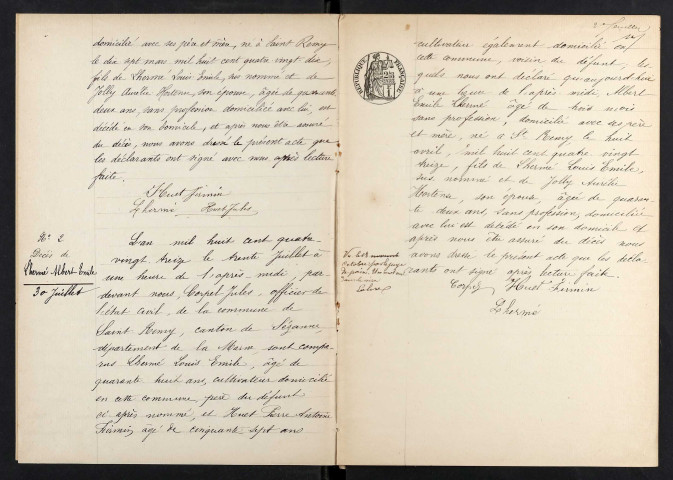 domicilié avec ses père et mère, né à Saint Remy
le dix sept mars mil huit cent quatre vingt dix,
fils de Lhermé Louis Emile, sus nommé et de
Jolly Aurélie Hortense, son épouse, âgée de quarante
deux ans, sans profession domiciliée avec lui, est
décédé en son domicile, et après nous être assuré
du décès, nous avons dressé le présent acte que
les déclarants ont signé avec nous après lecture
faite.
Huet Firmin
Lhermé Huet Jules
No 2
Décès de
Lhermé Albert Emile
30 Juillet
L'an mil huit cent quatre
vingt treize le trente Juillet à
une heure de l'après midi, par
devant nous, Corpel Jules, officier de
l'état civil, de la commune de
Saint Remy, canton de Sézanne,
département de la Marne, sont compa-
rus Lhermé Louis Emile, âgé de
quarante huit ans, cultivateur domicilié
en cette commune, père du défunt
ci après nommé, et Huet Pierre Antoine
Firmin, âgé de cinquante sept ans
REPUBLIQUE FRANÇAISE
cultivateur également domicilié en
cette commune, voisin du défunt, les
quels nous ont déclaré qu'aujourd'hui
à une heure de l'après midi, Albert
Emile Lhermé âgé de trois mois
sans profession, domicilié avec ses père
et mère, né à St Remy le huit
avril, mil huit cent quatre vingt
treize, fils de Lhermé Louis Emile,
sus nommé et de Jolly Aurélie
Hortense, son épouse, âgée de quaran-
te deux ans, sans profession, domiciliée
avec lui est décédé en son domicile et
après nous être assuré du décès nous
avons dressé le présent acte que les décla-
rants ont signé après lecture faite.
Corpel Huet Firmin
Lhermé